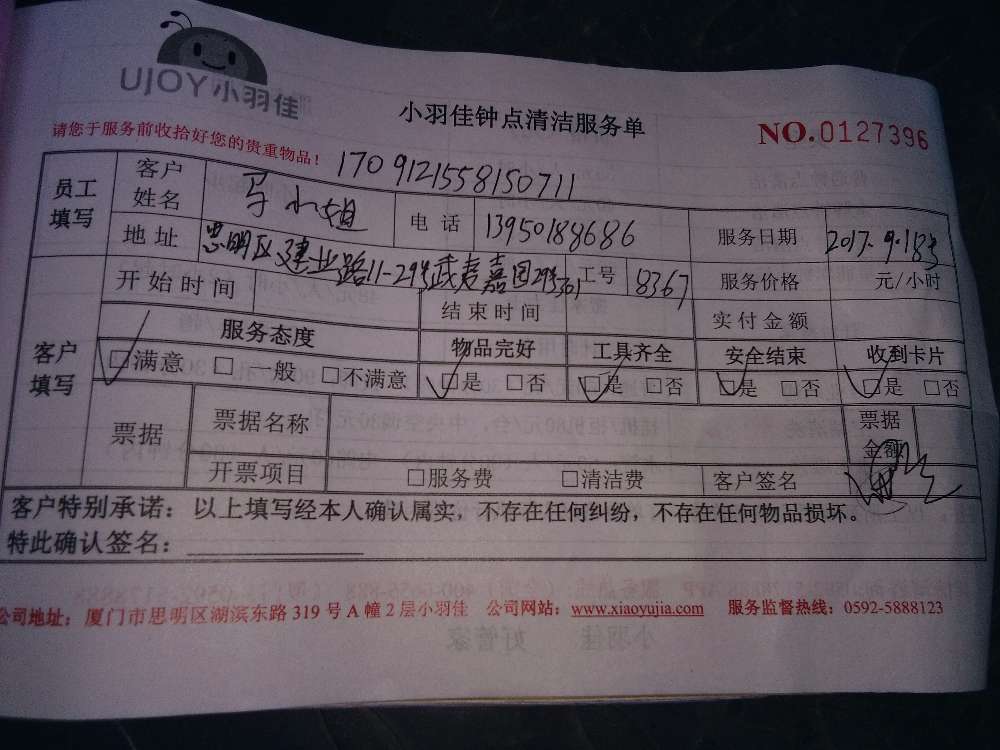 UJOY小羽佳
小羽佳钟点清洁服务单
NO.0127396
请您于服务前收拾好您的贵重物品！
1709121558150711
员工填写 客户姓名 马小姐 电话 13950188686 服务日期 2017.9.18
地址 思明区建业路11-29号武夷嘉园29号301 工号 8367 服务价格 元/小时
客户填写 开始时间 结束时间 实付金额
服务态度 物品完好 工具齐全 安全结束 收到卡片
□满意 □一般 □不满意 □是 □否 □是 □否 □是 □否 □是 □否
票据 票据名称 票据金额
开票项目 □服务费 □清洁费 客户签名
客户特别承诺：以上填写经本人确认属实，不存在任何纠纷，不存在任何物品损坏。
特此确认签名：
公司地址：厦门市思明区湖滨东路319号A幢2层小羽佳 公司网站：www.xiaoyujia.com 服务监督热线：0592-5888123